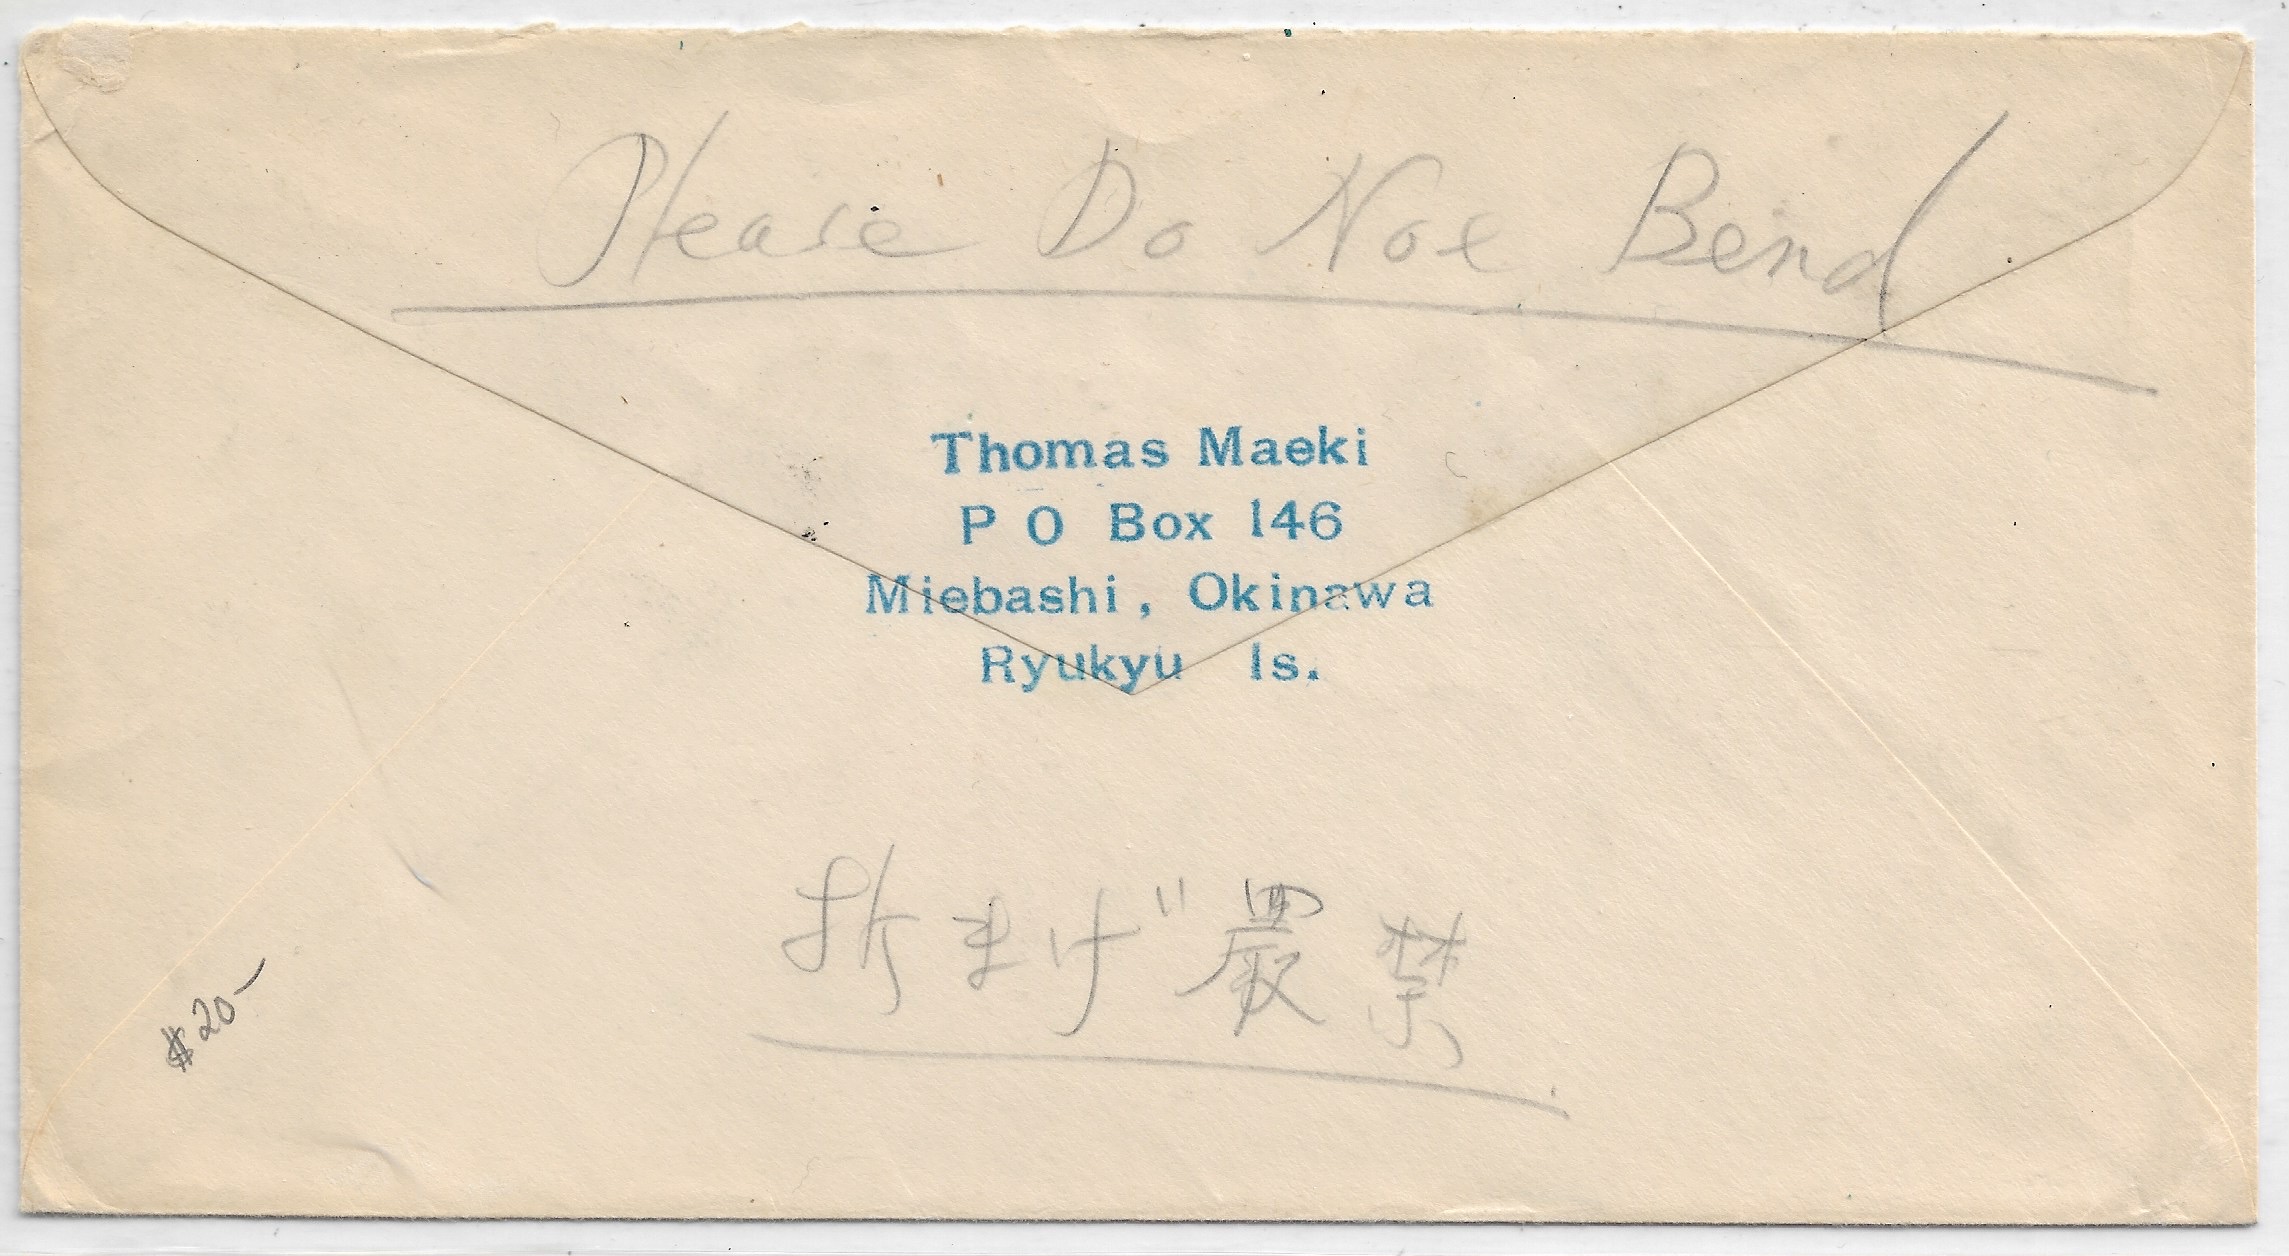 Please Do Not Bend
Thomas Maeki
P O Box 146
Miebashi, Okinawa
Ryukyu Is.
折まげ厳禁
$20-